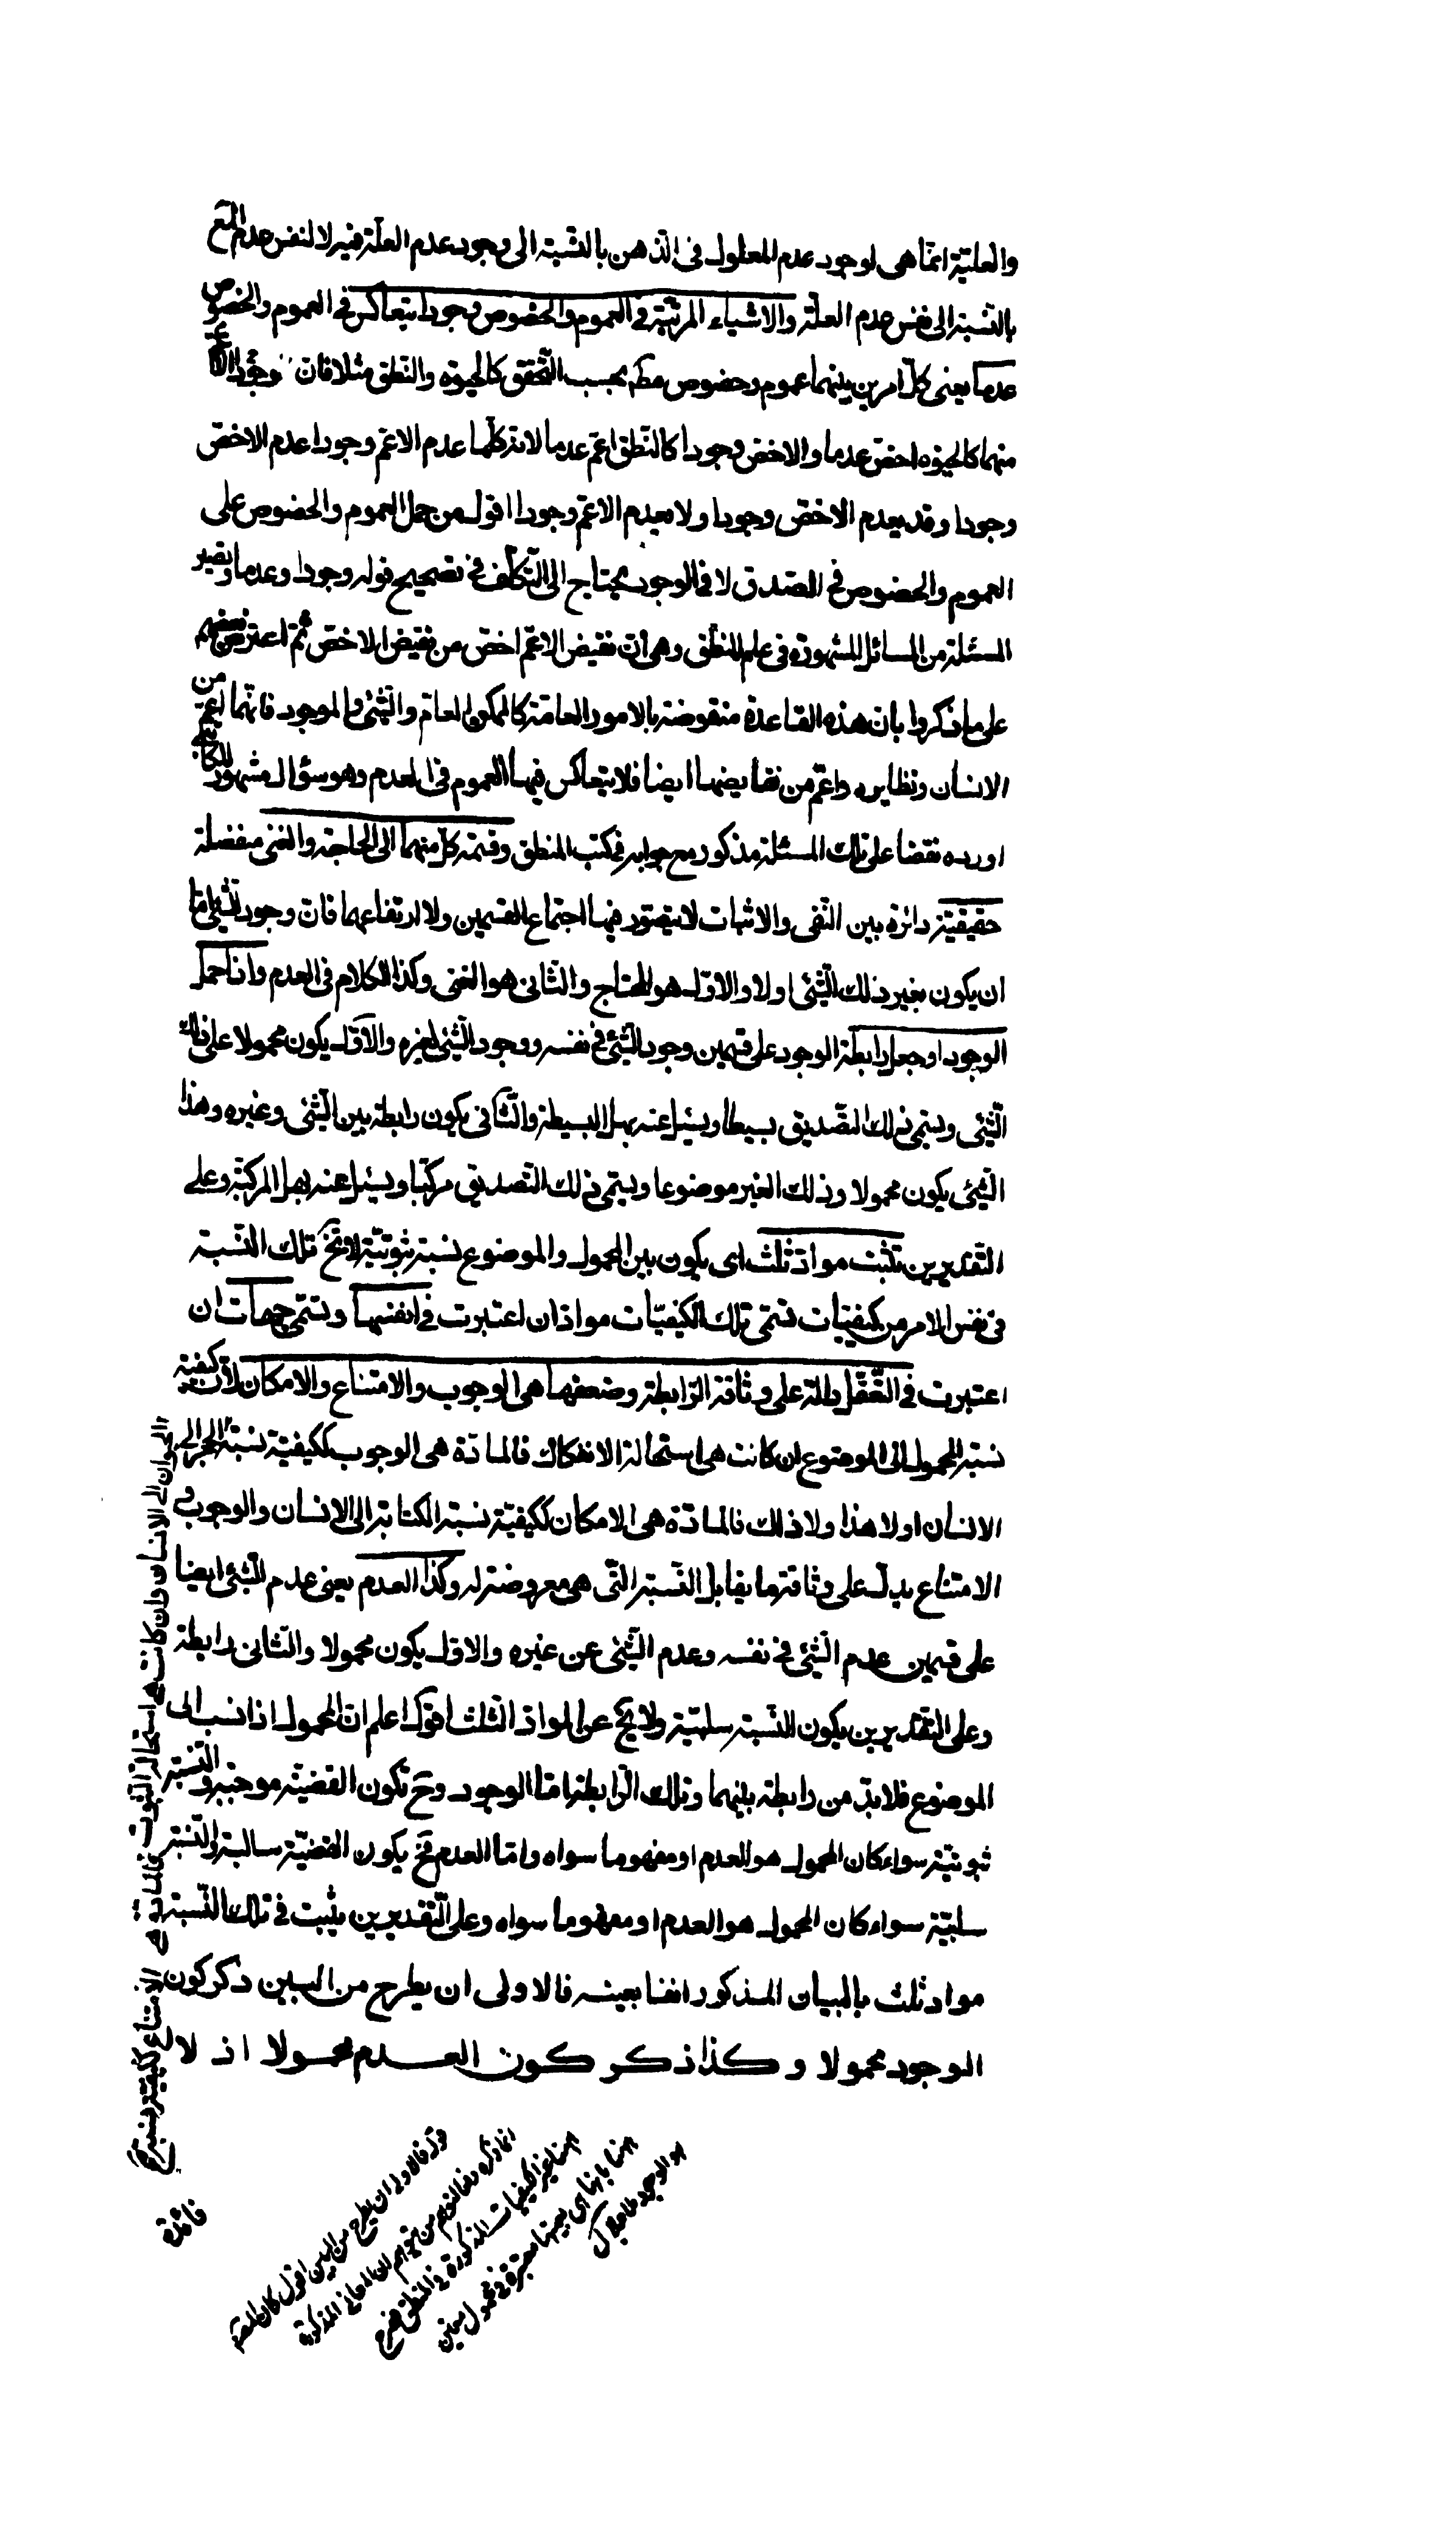 والعليّة انمّا هى لوجود عدم المعلول فى الذهن بالنسبة الى وجود عدم العلّة فيه لا لنفس عدم المع
بالنسبة الى نفس عدم العلّة والاشياء المرتّبة فى العموم والخصوص وجودا يتعاكس فى العموم والخصوص
عدما يعنى كلّ امرين بينهما عموم وخصوص مطم بحسب التّحقق كالحيوة والنّطق مثلا فان وجود الاعم
منهما كالحيوة اخصّ عدما والاخصّ وجودا كالنّطق اعمّ عدما لانه كلّما عدم الاعمّ وجودا عدم الاخصّ
وجودا وقد يعدم الاخصّ وجودا ولا يعدم الاعمّ وجودا اقول من حمل العموم والخصوص على
العموم والخصوص فى الصّدق لا فى الوجود يحتاج الى التكلّف فى تصحيح قوله وجودا وعدما ويصير
المسئلة من المسائل المشهورة فى علم المنطق وهى ان نقيض الاعمّ اخصّ من نقيض الاخصّ ثم اعترض بعضهم
على ما ذكروا بان هذه القاعدة منقوضة بالامور العامّة كالممكن العامّ والشّئ والموجود فانّهما اعمّ من
الانسان ونظايره واعمّ من نقايضها ايضا فلا يتعاكس فيها العموم فى العدم وهو سؤال مشهور للكاتبى
اورده نقضا على تلك المسئلة مذكور مع جوابه فى كتب المنطق وقسمة كلّ منهما الى الحاجة والغنى منفصلة
حقيقيّة دائرة بين النّفى والاثبات لا يتصوّر فيها اجتماع القسمين ولا ارتفاعهما فان وجود الشّئ امّا
ان يكون بغير ذلك الشّئ اولا والاوّل هو المحتاج والثّانى هو الغنى وكذا الكلام فى العدم واذا حمل
الوجود او جعل رابطة الوجود على قسمين وجود الشّئ فى نفسه ووجود الشّئ لغيره والاوّل يكون محمولا على ذلك
الشّئ ويسمّى ذلك التّصديق بسيطا ويسئل عنه بهل البسيطة والثّانى يكون رابطة بين الشّئ وغيره وهذا
الشّئ يكون محمولا وذلك الغير موضوعا ويسمّى ذلك التّصديق مركّبا ويسئل عنه بهل المركبّة وعلى
التّقديرين تثبت موادّ ثلث اى يكون بين المحمول والموضوع نسبة ثبوتيّة لا يخ تلك النّسبة
فى نفس الامر من كيفيّات تسمّى تلك الكيفيّات موادّ ان اعتبرت فى انفسها وتسمّى جهات ان
اعتبرت فى التّعقّل دالّة على وثاقة الرّابطة وضعفها هى الوجوب والامتناع والامكان لانّ كيفيّة
نسبة المحمول الى الموضوع ان كانت هى استحالة الانفكاك فالمادّة هى الوجوب ككيفيّة نسبة
الحيوان الى الانسان وان كانت هى استحالة الثبوت فالمادة هى الامتناع ككيفيّة نسبة الحجر الى
الانسان اولا هذا ولا ذلك فالمادّة هى الامكان ككيفيّة نسبة الكتابة الى الانسان والوجوب و
الامتناع يدلّ على وثاقة ما يقابل النّسبة الّتى هى معروضة له وكذا العدم يعنى عدم الشّئ ايضا
على قسمين عدم الشّئ فى نفسه وعدم الشّئ عن غيره والاوّل يكون محمولا والثّانى رابطة
وعلى التقديرين يكون النّسبة سلبيّة ولا يخ عن الموادّ الثّلث اقول اعلم ان المحمول اذا نسب الى
الموضوع فلا بدّ من رابطة بينهما وتلك الرّابطة امّا الوجود وح تكون القضيّة موجبة والنّسبة
ثبوتيّة سواء كان المحمول هو العدم او مفهوما سواه وامّا العدم فح يكون القضيّة سالبة والنّسبة
سلبيّة سواء كان المحمول هو العدم او مفهوما سواه وعلى التّقديرين يثبت فى تلك النّسبة
مواد ثلث بالبيان المذكور انفا بعينه فالاولى ان يطرح من البين ذكر كون
الوجود محمولا وكذا ذكر كون العدم محمولا اذ لا
فائدة
قوله فالاولى ان يطرح من البين اقول كان المصّ
انما ذكره دفعا لتوهم من يتوهم ان المعانى المذكورة
هنا غير الكيفيات المذكورة فى المنطق